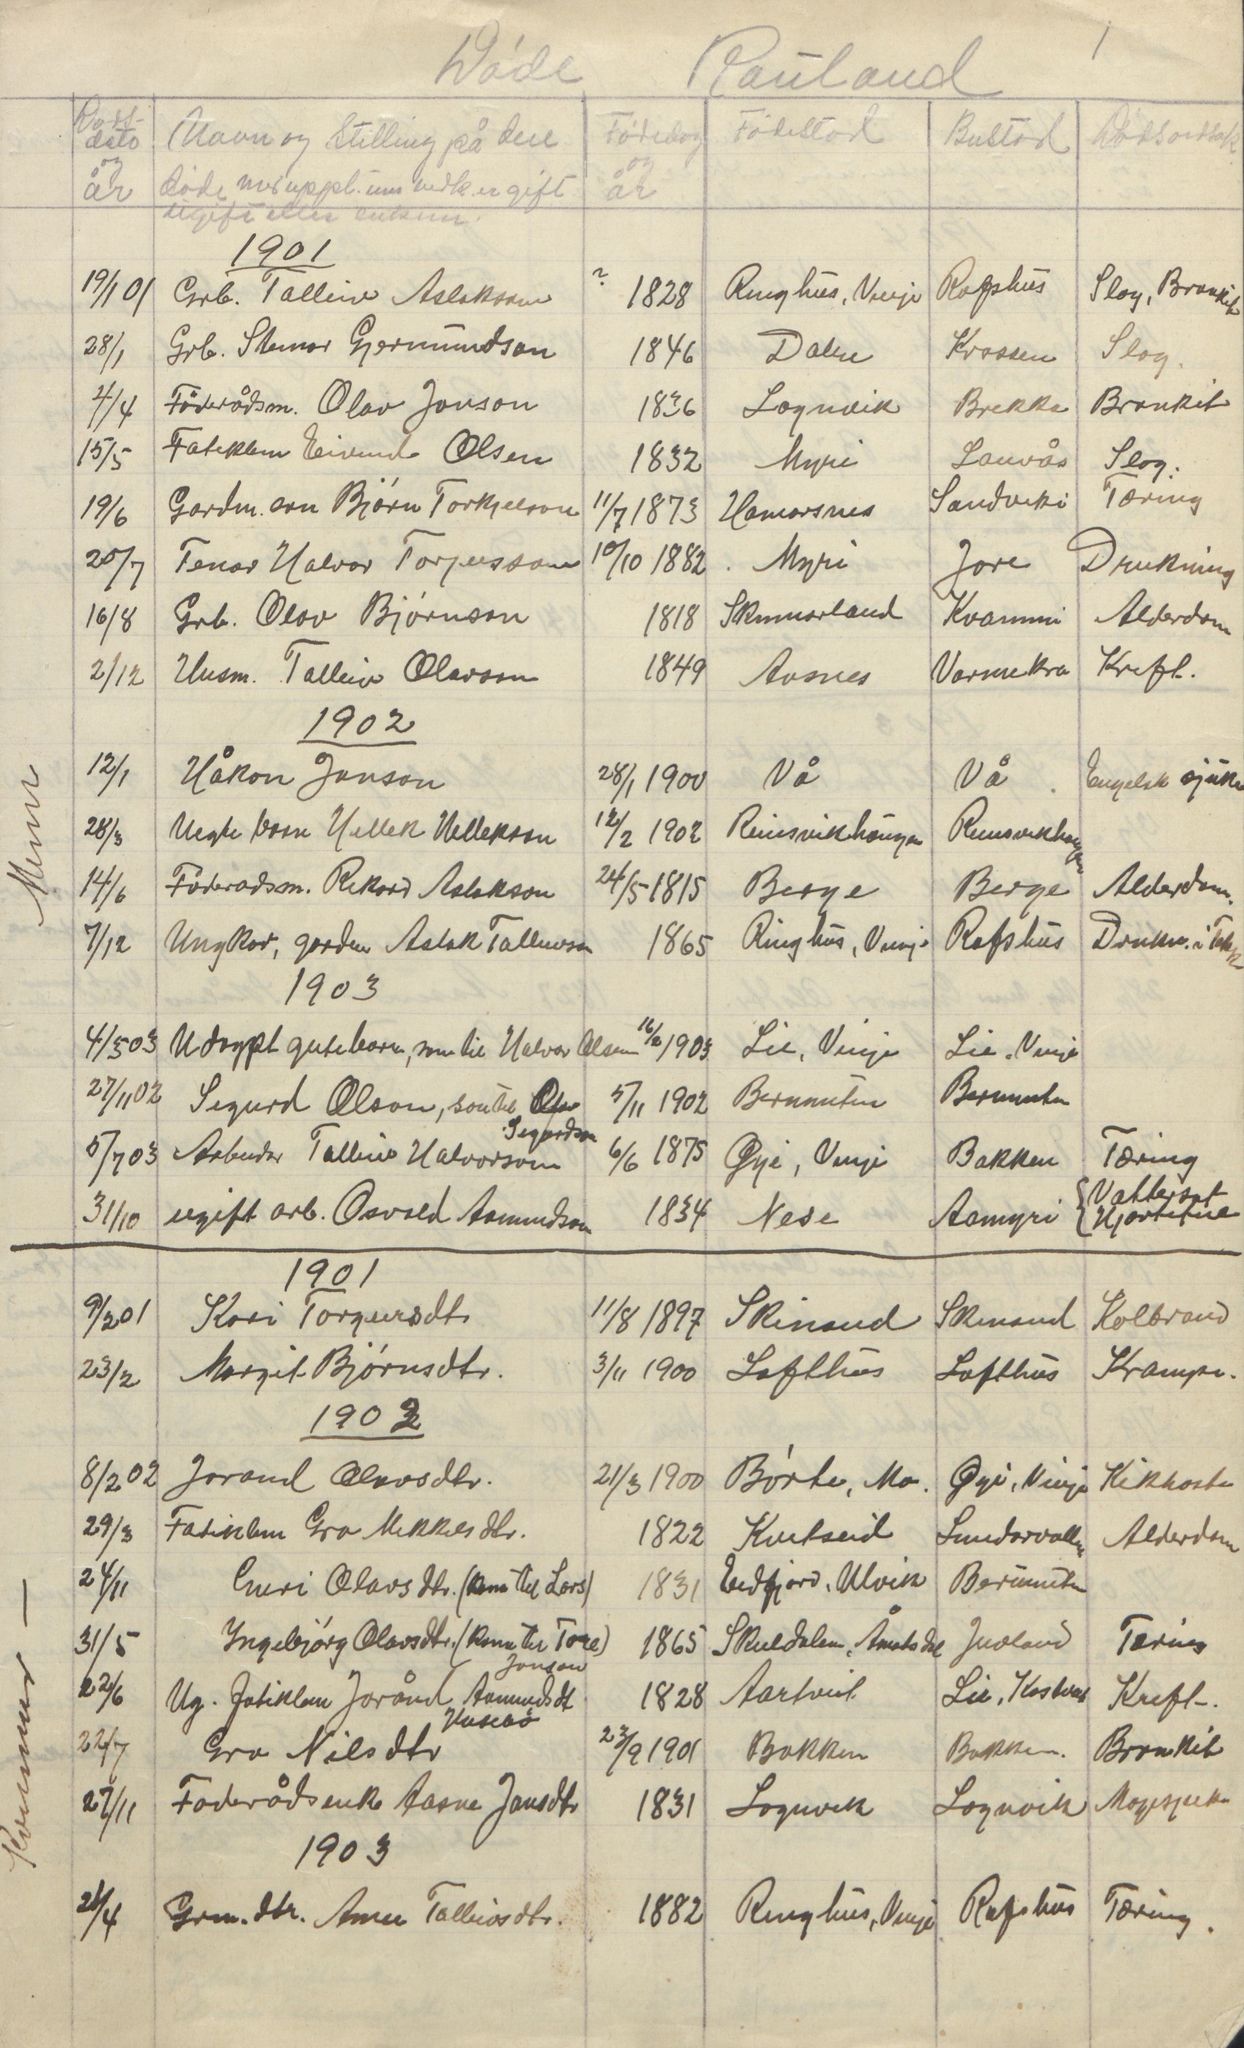 Døde Rauland 1
Døds-dato og år Navn og Stilling på den Fødedag og år Fødestad Bustad Dødsorsak
døde med uppl. um vedk. er gift
ugift eller enkem.
1901
19/1 01 Grb. Talleiv Aslakson ? 1828 Ringhus, Vinje Rafshus Slag, Bronkit
28/1 Grb. Steinar Gjermundson 1846 Dalen Krossen Slag.
4/4 Føderådsm. Olav Jonson 1836 Lognvik Brekke Bronkit
15/5 Fatiklem Eivind Olsen 1832 Myri Lauvås Slag.
19/6 Gardm. son Bjørn Torkjelson 11/7 1873 Hamarsnes Sandviki Tæring
20/7 Tenar Halvor Torjusson 10/10 1882 Myri Jore Drukning
16/8 Grb. Olav Bjørnson 1818 Skinnarland Kvammi Alderdom
2/12 Husm. Talleiv Olavson 1849 Aasnes Varmekra Kreft.
1902
12/1 Håkon Jonson 28/1 1900 Vå Vå Engelsk sjuke
28/3 Uegte barn Hellek Hellekson 12/2 1902 Reinsvikhaugen Reinsvikhaugen
14/6 Føderadsm. Rikard Aslakson 24/5 1815 Berge Berge Alderdom.
7/12 Ungkar, Aslak Talleivson 1865 Ringhus, Vinje Rafshus Drukn. i
1903
4/3 03 Udøypt gutebarn, son til Halvor Olsen 16/2 1903 Lie, Vinje Lie, Vinje
27/11 02 Sigurd Olson, son til Olav 5/11 1902 Bermunten Bermunten
Sigurdson
5/7 03 Arbeider Talleiv Halvorson 6/6 1875 Øyi, Vinje Bakken Tæring
31/10 ugift arb. Osvald Aamundson 1834 Nese Aamyri { Vattersot
Hjartefeil
Menn
1901
9/2 01 Kari Torgeirsdtr 11/8 1897 Skinand Skinand Kolbrand
23/2 Margit Bjørnsdtr. 3/11 1900 Lofthus Lofthus Krampe.
1902
8/2 02 Jorand Olavsdtr. 21/3 1900 Børte, Mo. Øyi, Vinje Kikhoste
29/3 Fatiklem Gro Mikkelsdtr. 1822 Kvitseid Sundarvallen Alderdom
24/11 Guri Olavsdtr. (kona til Lars) 1831 Eidfjord, Ulvik Bermunten
31/5 Yngebjørg Olavsdtr. (kona til Tore) 1865 Skuldalen, Åmotsdal Juvland Tæring
Jonson
22/6 Ug. fatiklem Jorånd Aamundsdt 1828 Aartveit Lie, Kreft.
22/7 Gro Nilsdtr 23/9 1901 Bakken Bakken. Bronkit
27/11 Føderådsenk Aasne Jonsdtr 1831 Lognvik Lognvik Magesjuke
1903
21/4 Grm. dtr. Anne Talleivsdtr. 1882 Ringhus, Vinje Rafshus Tæring.
Kvinnur —